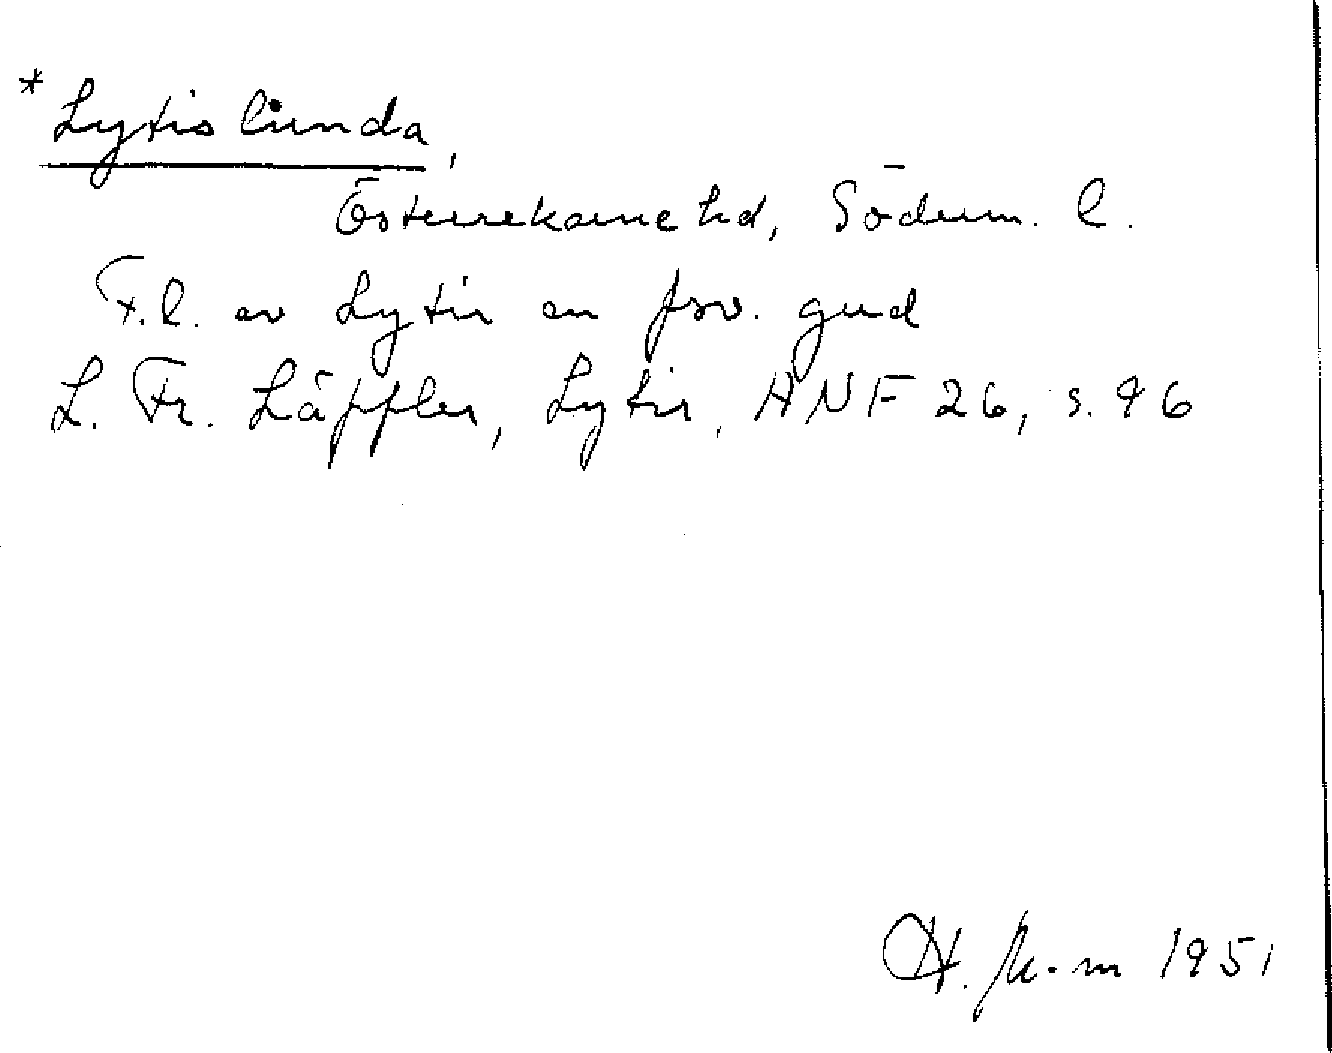 * Lytislunda,
Österrekarne hd, Söderm. l.
F.l. av Lytir en fsv. gud
L. Fr. Läffler, Lytir, ANF 26, s. 96
H. 1951